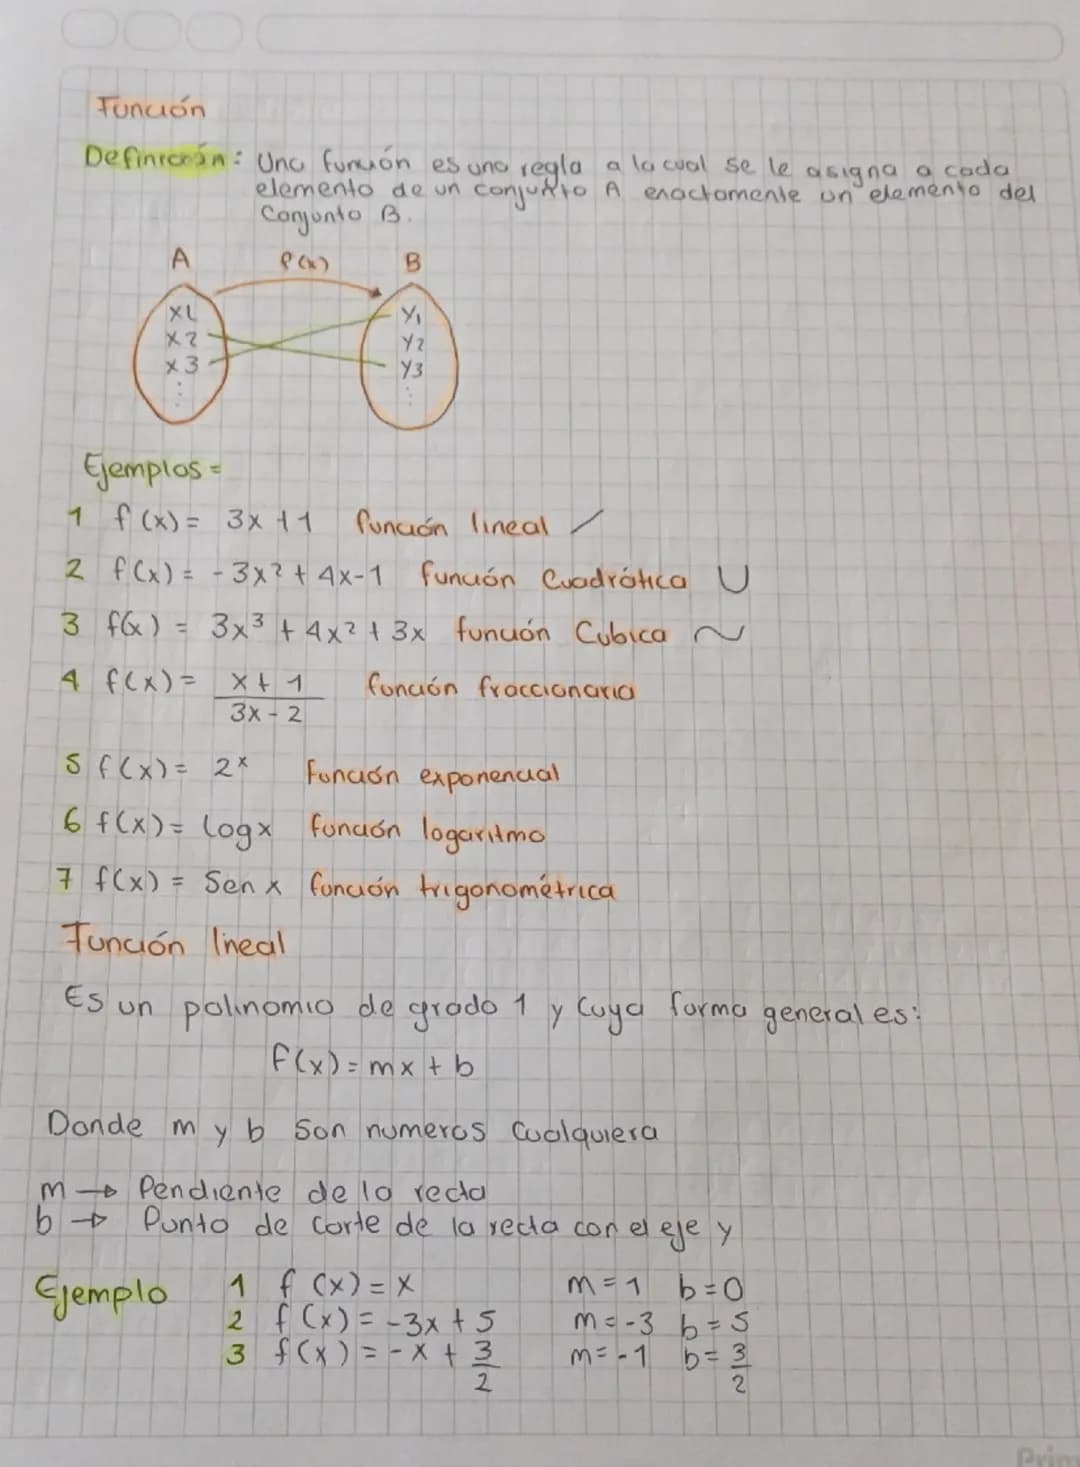 Función
Definición: Una función es una regla a la cual se le asigna a cada
elemento de un conjunto A exactamente un elemento del
Conjunto B.
A f(x) B
x1 y1
x2 y2
x3 y3
Ejemplos =
1 f(x) = 3x + 1 función lineal
2 f(x) = -3x² + 4x - 1 función Cuadrática
3 f(x) = 3x³ + 4x² + 3x función Cubica
4 f(x) = x + 1 función fraccionaria
3x - 2
5 f(x) = 2ˣ función exponencial
6 f(x) = Log x función logaritmo
7 f(x) = Sen x función trigonométrica
Función lineal
Es un polinomio de grado 1 y Cuya forma general es:
f(x) = mx + b
Donde m y b son numeros Cualquiera
m → Pendiente de la recta
b → Punto de Corte de la recta con el eje y
Ejemplo 1 f(x) = x m = 1 b = 0
2 f(x) = -3x + 5 m = -3 b = 5
3 f(x) = -x + 3/2 m = -1 b = 3/2